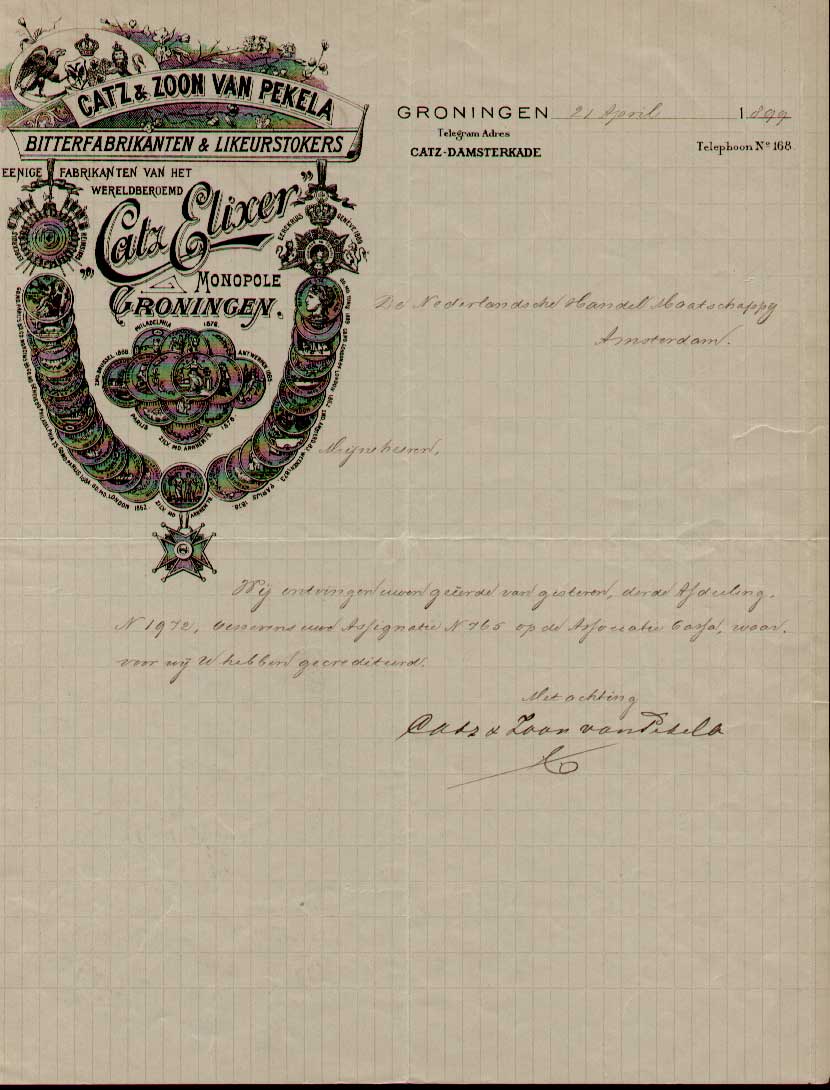 CATZ & ZOON VAN PEKELA
BITTERFABRIKANTEN & LIKEURSTOKERS
EENIGE FABRIKANTEN VAN HET
WERELDBEROEMD
„Catz Elixer”
MONOPOLE
GRONINGEN.
PHILADELPHIA 1876.
ANTWERPEN 1885
PARIJS 1878
ZILV. MD. ARNHEM 1879
LONDON 1862.
PARIJS 1878.
GRONINGEN 21 April 1899
Telegram Adres
CATZ-DAMSTERKADE
Telephoon No 168.
De Nederlandsche Handel Maatschappy
Amsterdam.
Mijneheeren,
Wij ontvingen uwen geëerde van gisteren, derde Afdeeling.
N 1972, benevens uwe Assignatie N 765 op de Associatie Cassa, waar-
voor wij U hebben gecrediteerd.
Met achting
Catz & Zoon van Pekela